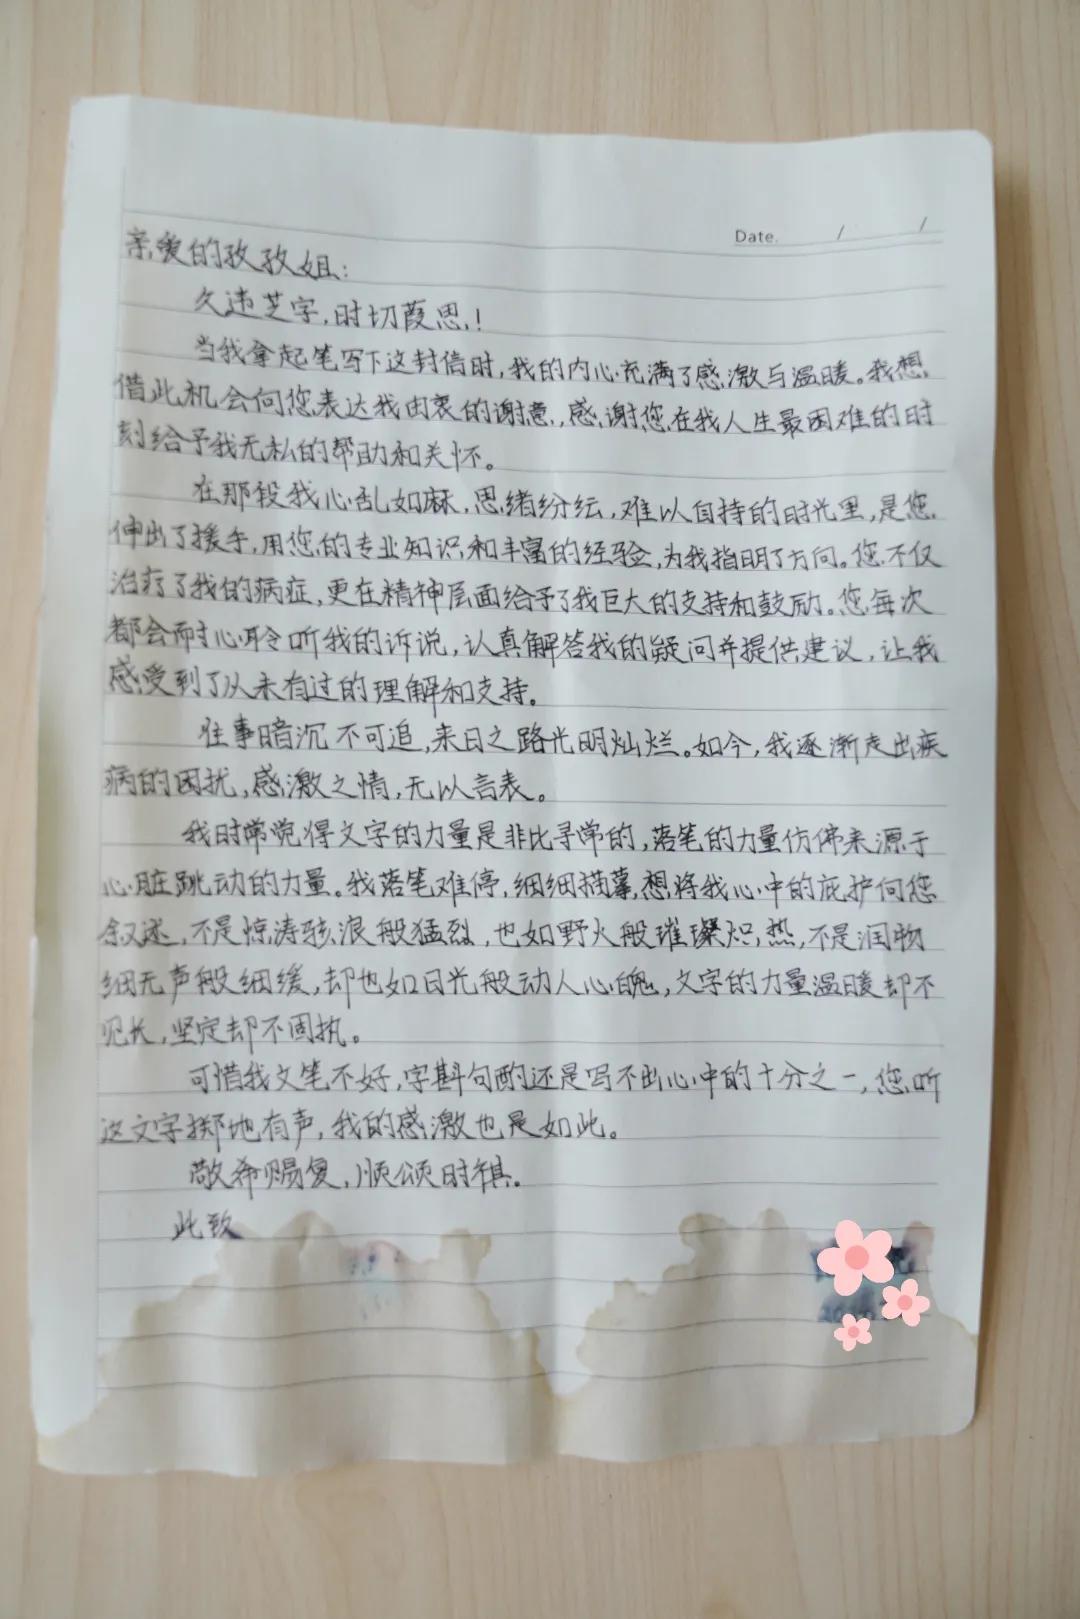 Date. / /
亲爱的孜孜姐：
久违芝字，时切葭思！
当我拿起笔写下这封信时，我的内心充满了感激与温暖。我想
借此机会向您表达我由衷的谢意，感谢您在我人生最困难的时
刻给予我无私的帮助和关怀。
在那段我心乱如麻，思绪纷纭，难以自持的时光里，是您
伸出了援手，用您的专业知识和丰富的经验，为我指明了方向。您不仅
治疗了我的病症，更在精神层面给予了我巨大的支持和鼓励。您每次
都会耐心聆听我的诉说，认真解答我的疑问并提供建议，让我
感受到了从未有过的理解和支持。
往事暗沉不可追，来日之路光明灿烂。如今，我逐渐走出疾
病的困扰，感激之情，无以言表。
我时常觉得文字的力量是非比寻常的，落笔的力量仿佛来源于
心脏跳动的力量。我落笔难停，细细描摹，想将我心中的庇护向您
叙述，不是惊涛骇浪般猛烈，也如野火般璀璨炽热，不是润物
细无声般细缓，却也如日光般动人心魄，文字的力量温暖却不
冗长，坚定却不固执。
可惜我文笔不好，字斟句酌还是写不出心中的十分之一，您听
这文字掷地有声，我的感激也是如此。
敬希赐复，顺颂时祺。
此致